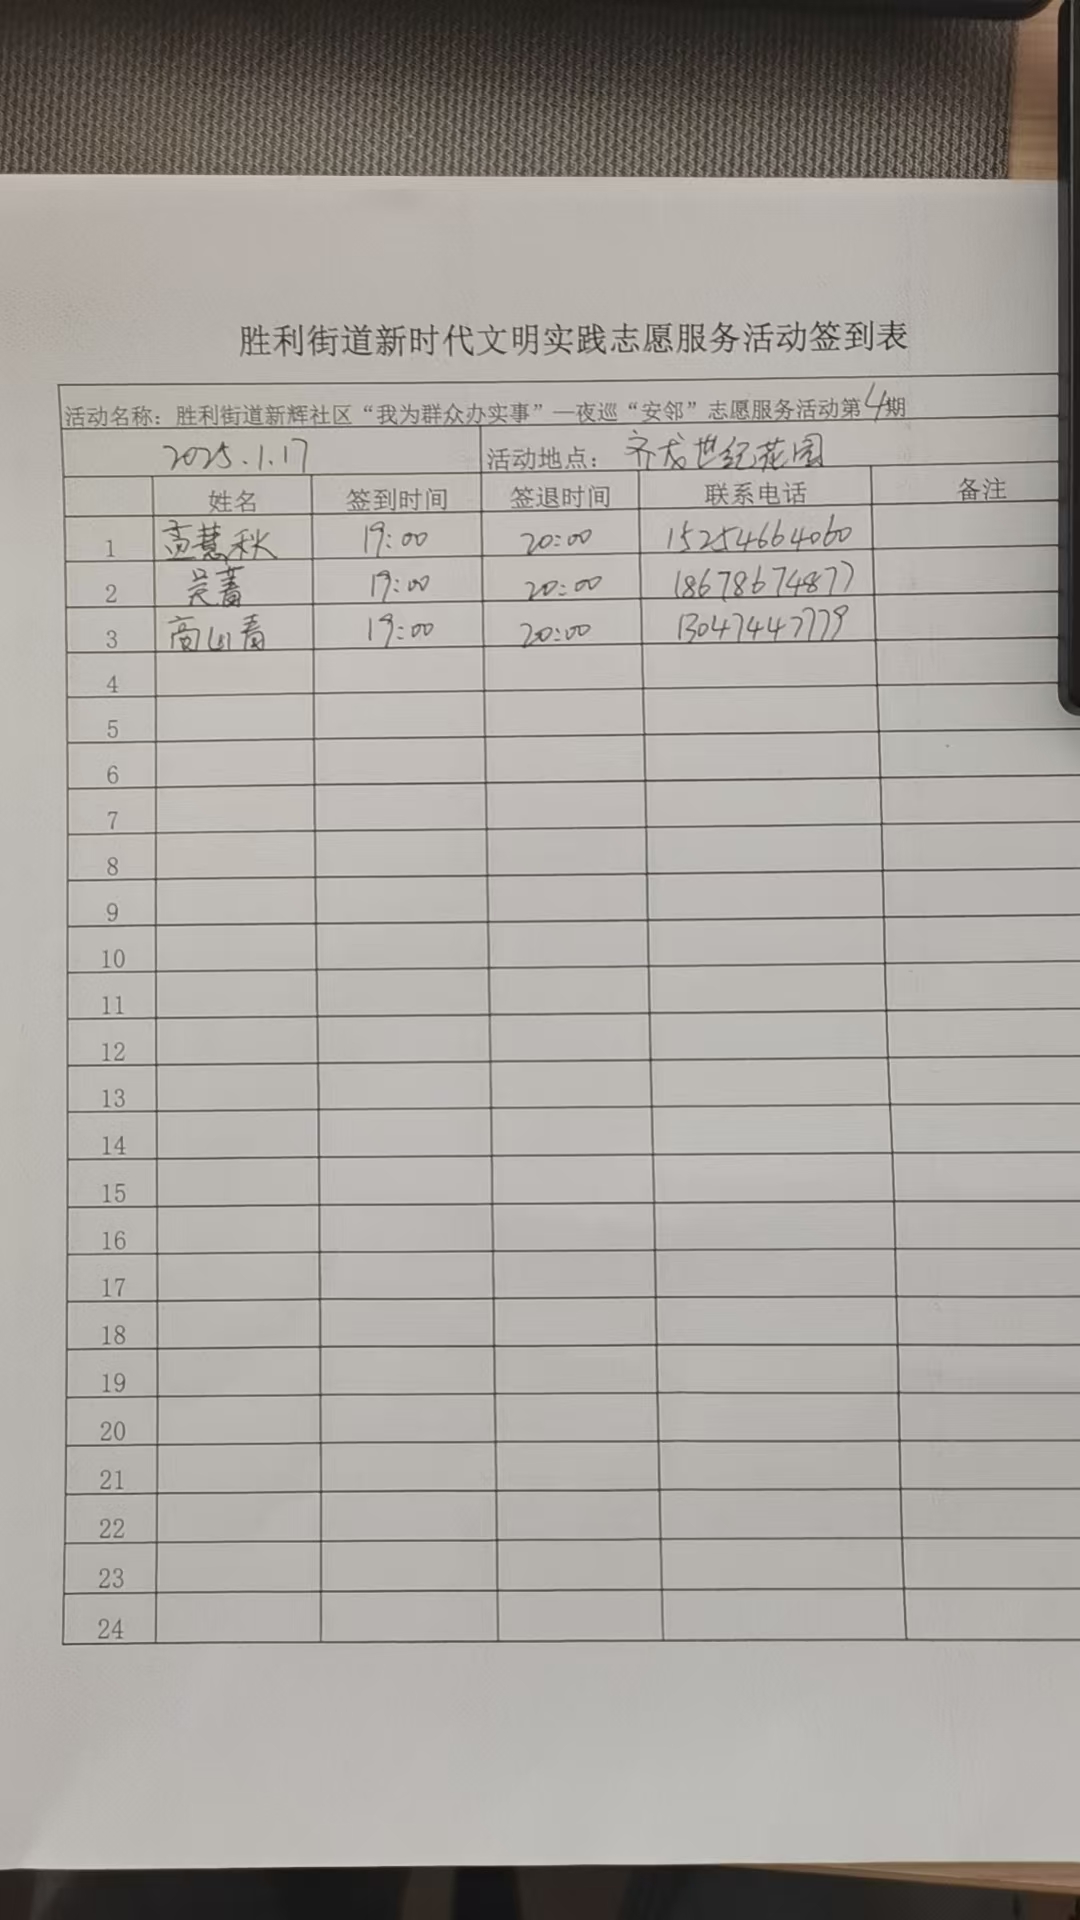 胜利街道新时代文明实践志愿服务活动签到表
活动名称：胜利街道新辉社区“我为群众办实事”—夜巡“安邻”志愿服务活动第4期
2025.1.17 活动地点：齐成世纪花园
姓名 签到时间 签退时间 联系电话 备注
1 孟慧秋 19:00 20:00 15254664060
2 吴蕾 19:00 20:00 18678674877
3 高山青 19:00 20:00 13047447779
4
5
6
7
8
9
10
11
12
13
14
15
16
17
18
19
20
21
22
23
24